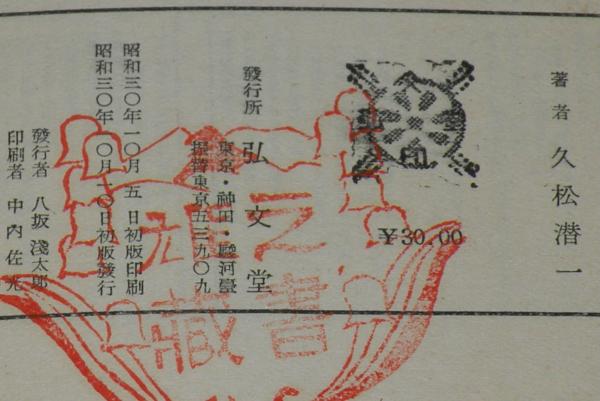 著者 久松潜一
¥30.00
印
發行所 弘文堂
東京・神田・駿河臺
振替東京五三九〇九
昭和三〇年一〇月五日初版印刷
昭和三〇年一〇月一〇日初版發行
發行者 八坂淺太郎
印刷者 中内佐光
之
書
藏